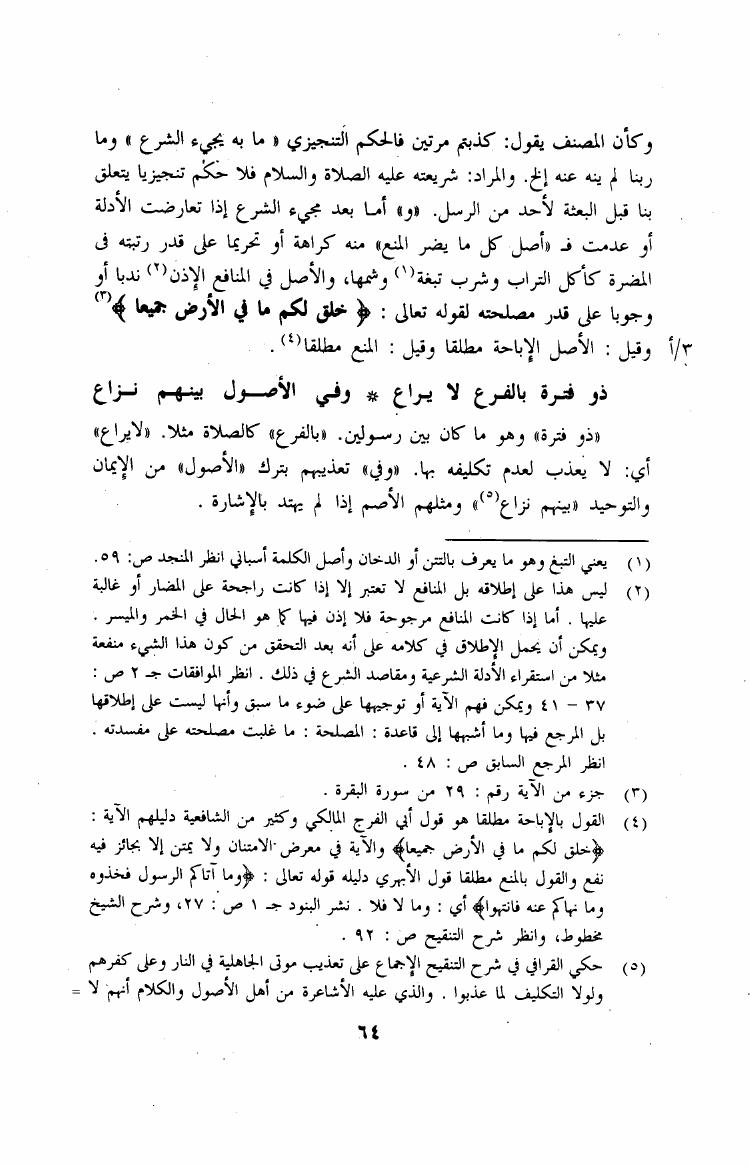 وكأن المصنف يقول: كذبتم مرتين فالحكم التنجيزي « ما به يجيء الشرع » وما
ربنا لم ينه عنه إلخ. والمراد: شريعته عليه الصلاة والسلام فلا حكْم تنجيزيا يتعلق
بنا قبل البعثة لأحد من الرسل. «و» أما بعد مجيء الشرع إذا تعارضت الأدلة
أو عدمت فـ «أصل كل ما يضر المنع» منه كراهة أو تحريما على قدر رتبته فى
المضرة كأكل التراب وشرب تبغة(١) وشمها، والأصل في المنافع الإذن(٢) ندبا أو
وجوبا على قدر مصلحته لقوله تعالى : ﴿ خلق لكم ما في الأرض جميعا ﴾(٣)
٣/أ وقيل : الأصل الإباحة مطلقا وقيل : المنع مطلقا(٤) .
ذو فترة بالفرع لا يراع * وفي الأصول بينهم نزاع
«ذو فترة» وهو ما كان بين رسولين. «بالفرع» كالصلاة مثلا. «لايراع»
أي: لا يعذب لعدم تكليفه بها. «وفي» تعذيبهم بترك «الأصول» من الإيمان
والتوحيد «بينهم نزاع(٥)» ومثلهم الأصم إذا لم يهتد بالإشارة .
(١) يعني التبغ وهو ما يعرف بالتتن أو الدخان وأصل الكلمة أسباني انظر المنجد ص: ٥٩.
(٢) ليس هذا على إطلاقه بل المنافع لا تعتبر إلا إذا كانت راجحة على المضار أو غالبة
عليها . أما إذا كانت المنافع مرجوحة فلا إذن فيها كما هو الحال في الخمر والميسر .
ويمكن أن يحمل الإطلاق في كلامه على أنه بعد التحقق من كون هذا الشيء منفعة
مثلا من استقراء الأدلة الشرعية ومقاصد الشرع في ذلك . انظر الموافقات جـ ٢ ص :
٣٧ – ٤١ ويمكن فهم الآية أو توجيهها على ضوء ما سبق وأنها ليست على إطلاقها
بل المرجع فيها وما أشبهها إلى قاعدة : المصلحة : ما غلبت مصلحته على مفسدته .
انظر المرجع السابق ص : ٤٨ .
(٣) جزء من الآية رقم : ٢٩ من سورة البقرة .
(٤) القول بالإباحة مطلقا هو قول أبي الفرج المالكي وكثير من الشافعية دليلهم الآية :
﴿خلق لكم ما في الأرض جميعا﴾ والآية في معرض الامتنان ولا يمتن إلا بجائز فيه
نفع والقول بالمنع مطلقا قول الأبهري دليله قوله تعالى : ﴿وما آتاكم الرسول فخذوه
وما نهاكم عنه فانتهوا﴾ أي : وما لا فلا . نشر البنود جـ ١ ص : ٢٧، وشرح الشيخ
مخطوط، وانظر شرح التنقيح ص : ٩٢ .
(٥) حكي القرافي في شرح التنقيح الإجماع على تعذيب موتى الجاهلية في النار وعلى كفرهم
ولولا التكليف لما عذبوا . والذي عليه الأشاعرة من أهل الأصول والكلام أنهم لا =
٦٤